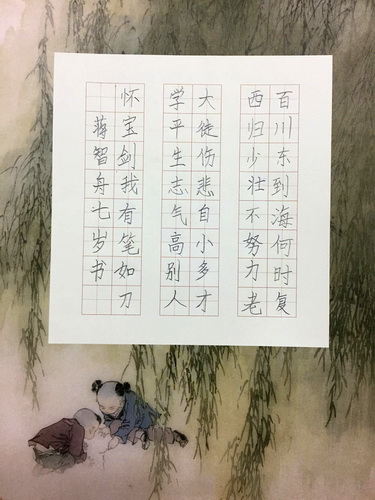 百川东到海何时复
西归少壮不努力老
大徒伤悲自小多才
学平生志气高别人
怀宝剑我有笔如刀
蒋智舟七岁书